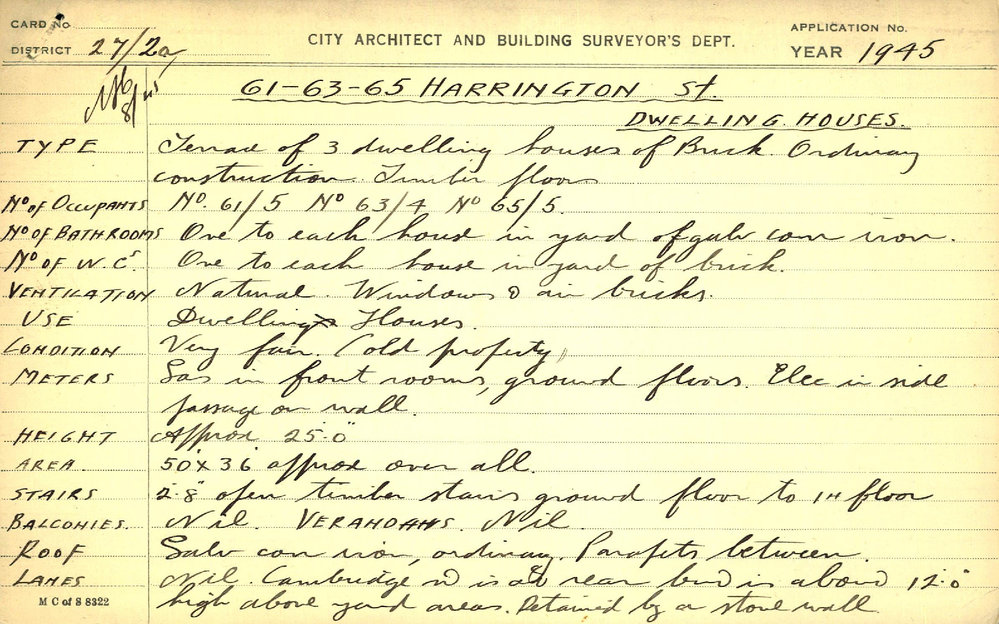 CARD No.
DISTRICT 27/2a
8/45
CITY ARCHITECT AND BUILDING SURVEYOR'S DEPT.
APPLICATION No.
YEAR 1945
61-63-65 HARRINGTON St.
DWELLING HOUSES.
TYPE Terrace of 3 dwelling houses of Brick. Ordinary
construction. Timber floors
No of OCCUPANTS No. 61/5 No 63/4 No 65/5.
No OF BATHROOMS One to each house in yard of galv corr iron.
No OF W.Cs. One to each house in yard of brick.
VENTILATION Natural. Windows & air bricks.
USE Dwelling Houses.
CONDITION Very fair. (old property)
METERS Gas in front rooms, ground floors. Elec in side
passage on wall.
HEIGHT Approx 25'.0"
AREA. 50'x 36' approx over all.
STAIRS 2'.8" open timber stairs ground floor to 1st floor
BALCONIES. Nil. VERANDAHS. Nil.
ROOF Galv corr iron, ordinary. Parapets between.
LANES Nil. Cambridge is at rear but is about 12'.0"
high above yard areas. Retained by a stone wall.
M C of S 8322